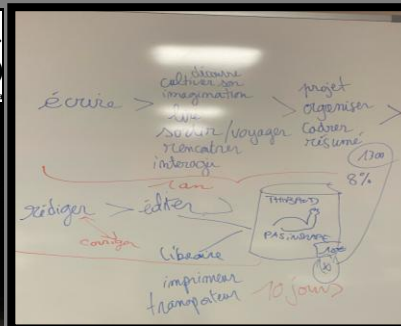 découvre
cultiver son
imagination
écrire >
lire
sortir/voyager
rencontrer
interagir
> projet
organiser
cadrer
résumé
>
1300
8%
1 an
rédiger > éditer
corriger
THIBAUD
libraire
imprimeur
transporteur
10 jours